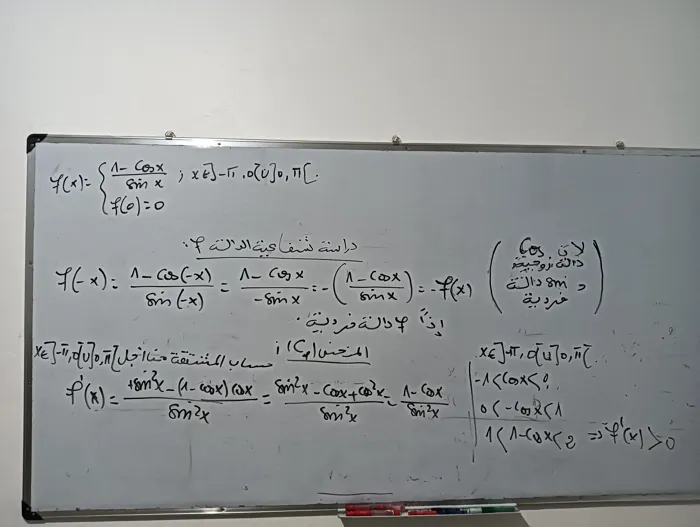 f(x) = { (1 - cos x) / (sin x) ; x ∈ ]-π, 0[ ∪ ]0, π[.
f(0) = 0
دراسة شفاعية الدالة f:
f(-x) = (1 - cos(-x)) / (sin(-x)) = (1 - cos x) / (-sin x) = -((1 - cos x) / (sin x)) = -f(x)
( لأن cos
دالة زوجية
و sin دالة
فردية )
إذاً f دالة فردية.
المنحنى (Cf):
حساب المشتقة من أجل x ∈ ]-π, 0[ ∪ ]0, π[
f'(x) = (+sin²x - (1 - cos x) cos x) / (sin²x) = (sin²x - cos x + cos²x) / (sin²x) = (1 - cos x) / (sin²x)
x ∈ ]-π, 0[ ∪ ]0, π[
-1 < cos x < 0
0 < -cos x < 1
1 < 1 - cos x < 2 => f'(x) > 0